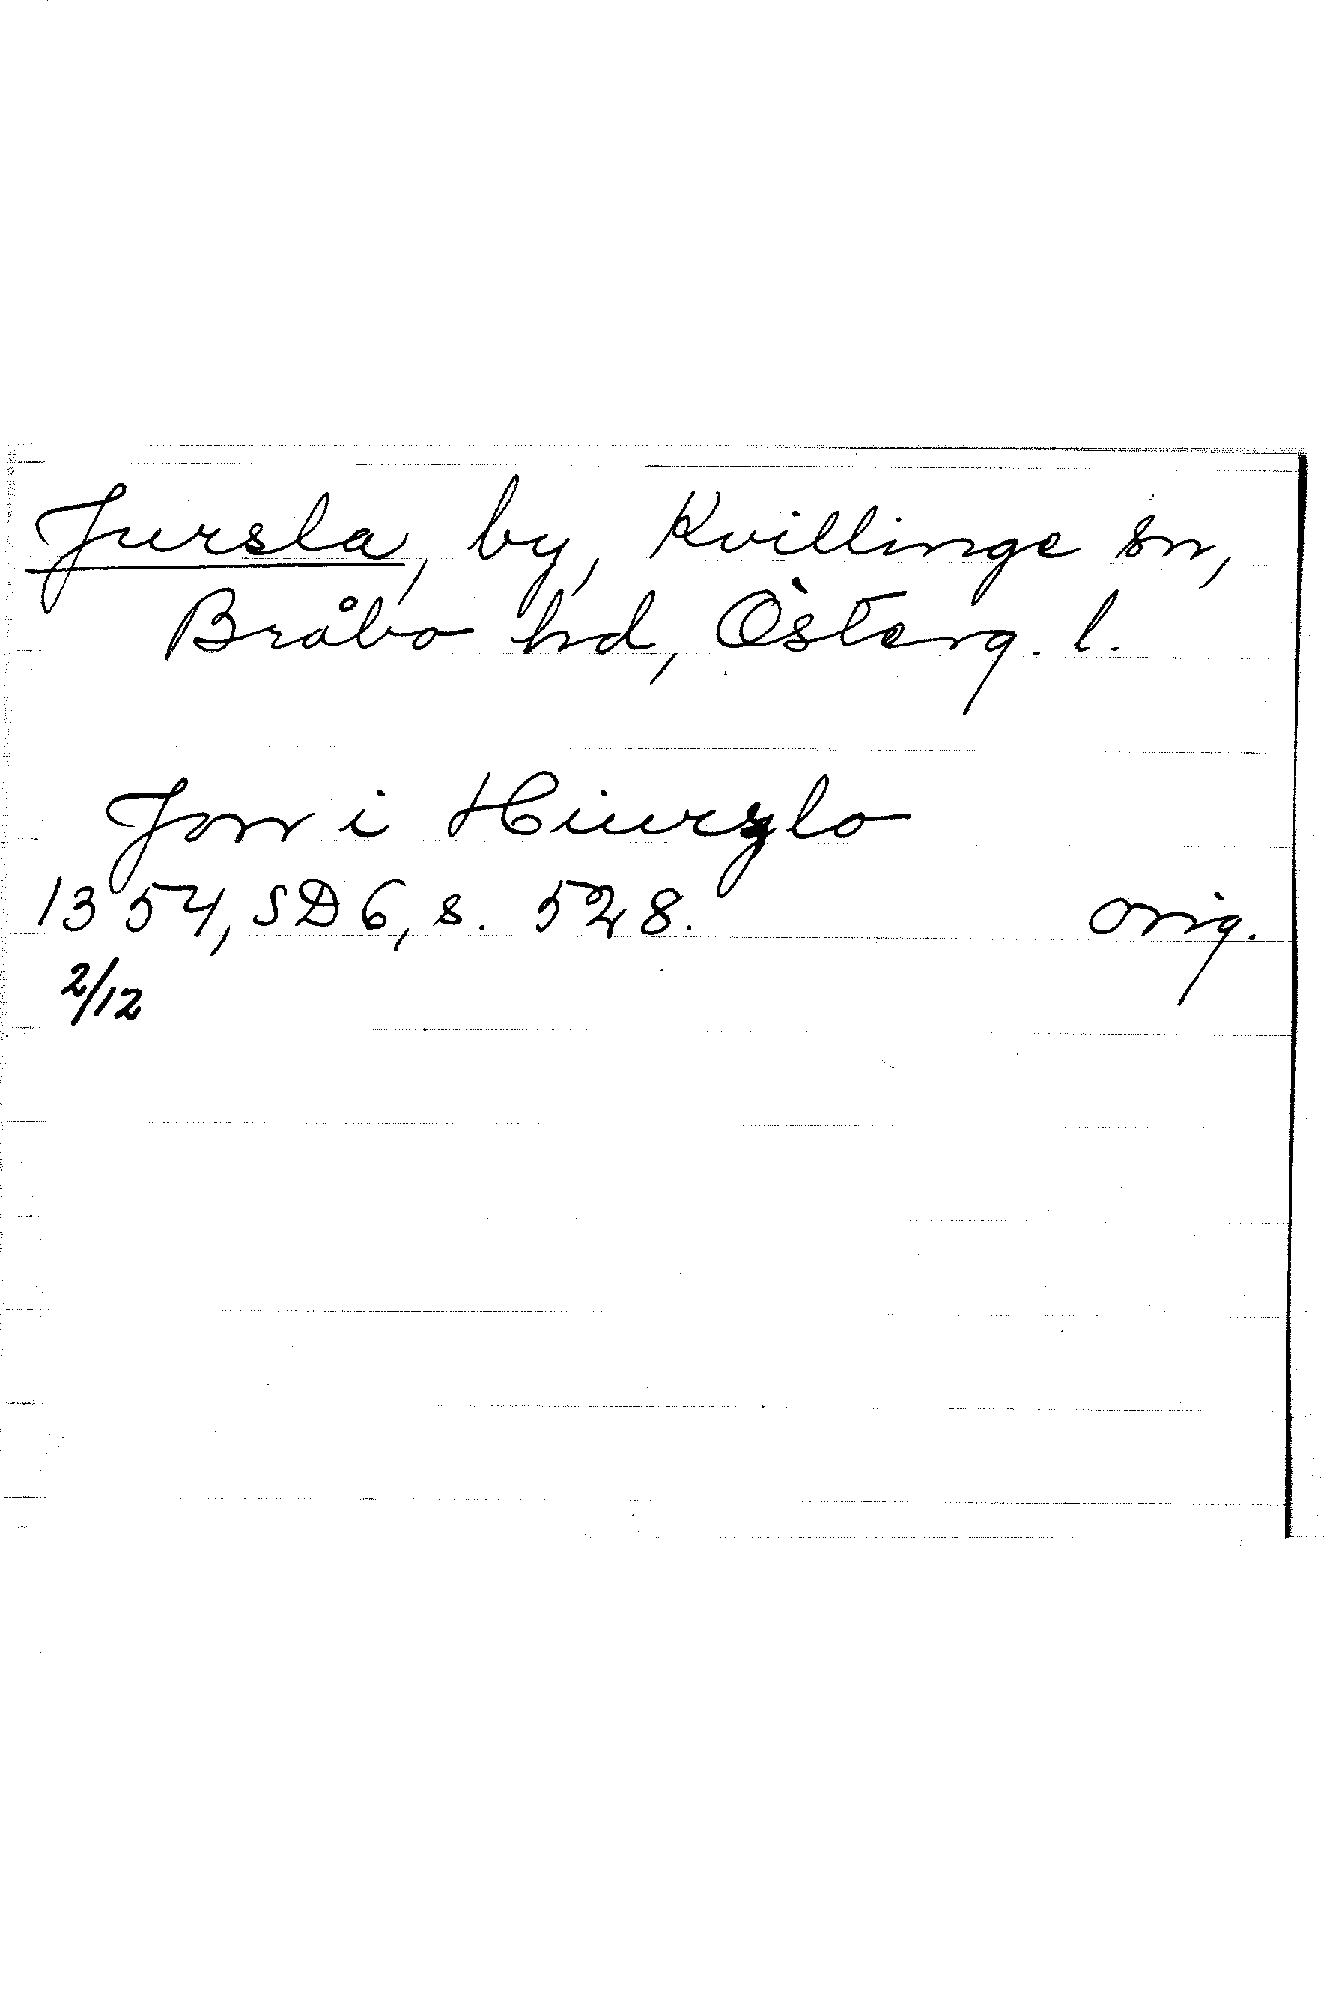 Jursla, by, Kvillinge sn,
Bråbo hd, Österg. l.
Jon i Hiurzlo
1354, SD6, s. 528. orig.
2/12